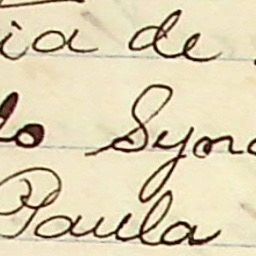 ia de
do Synd
Paula